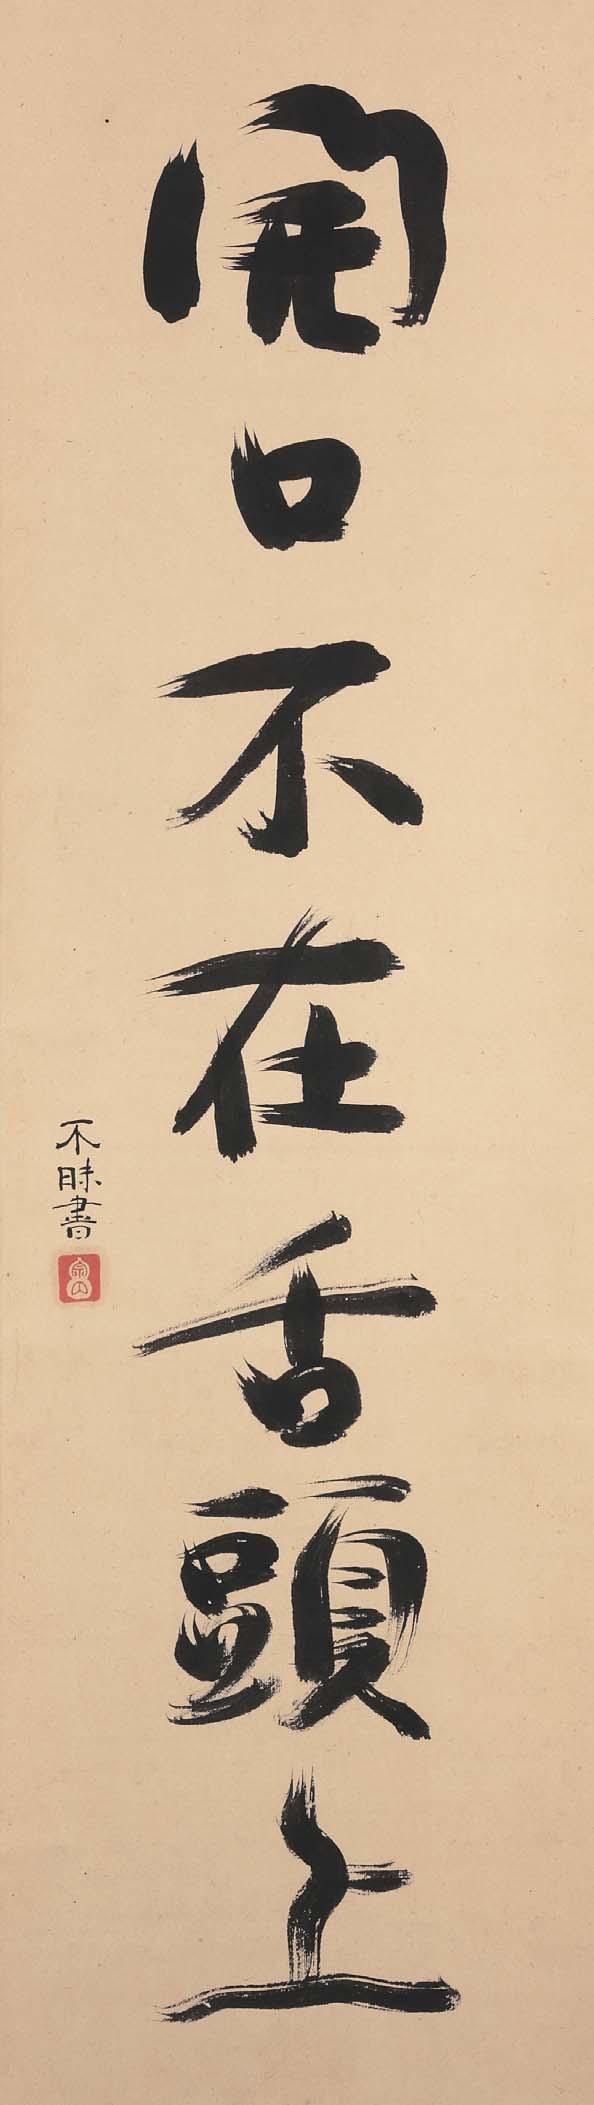 開口不在舌頭上
不昧書